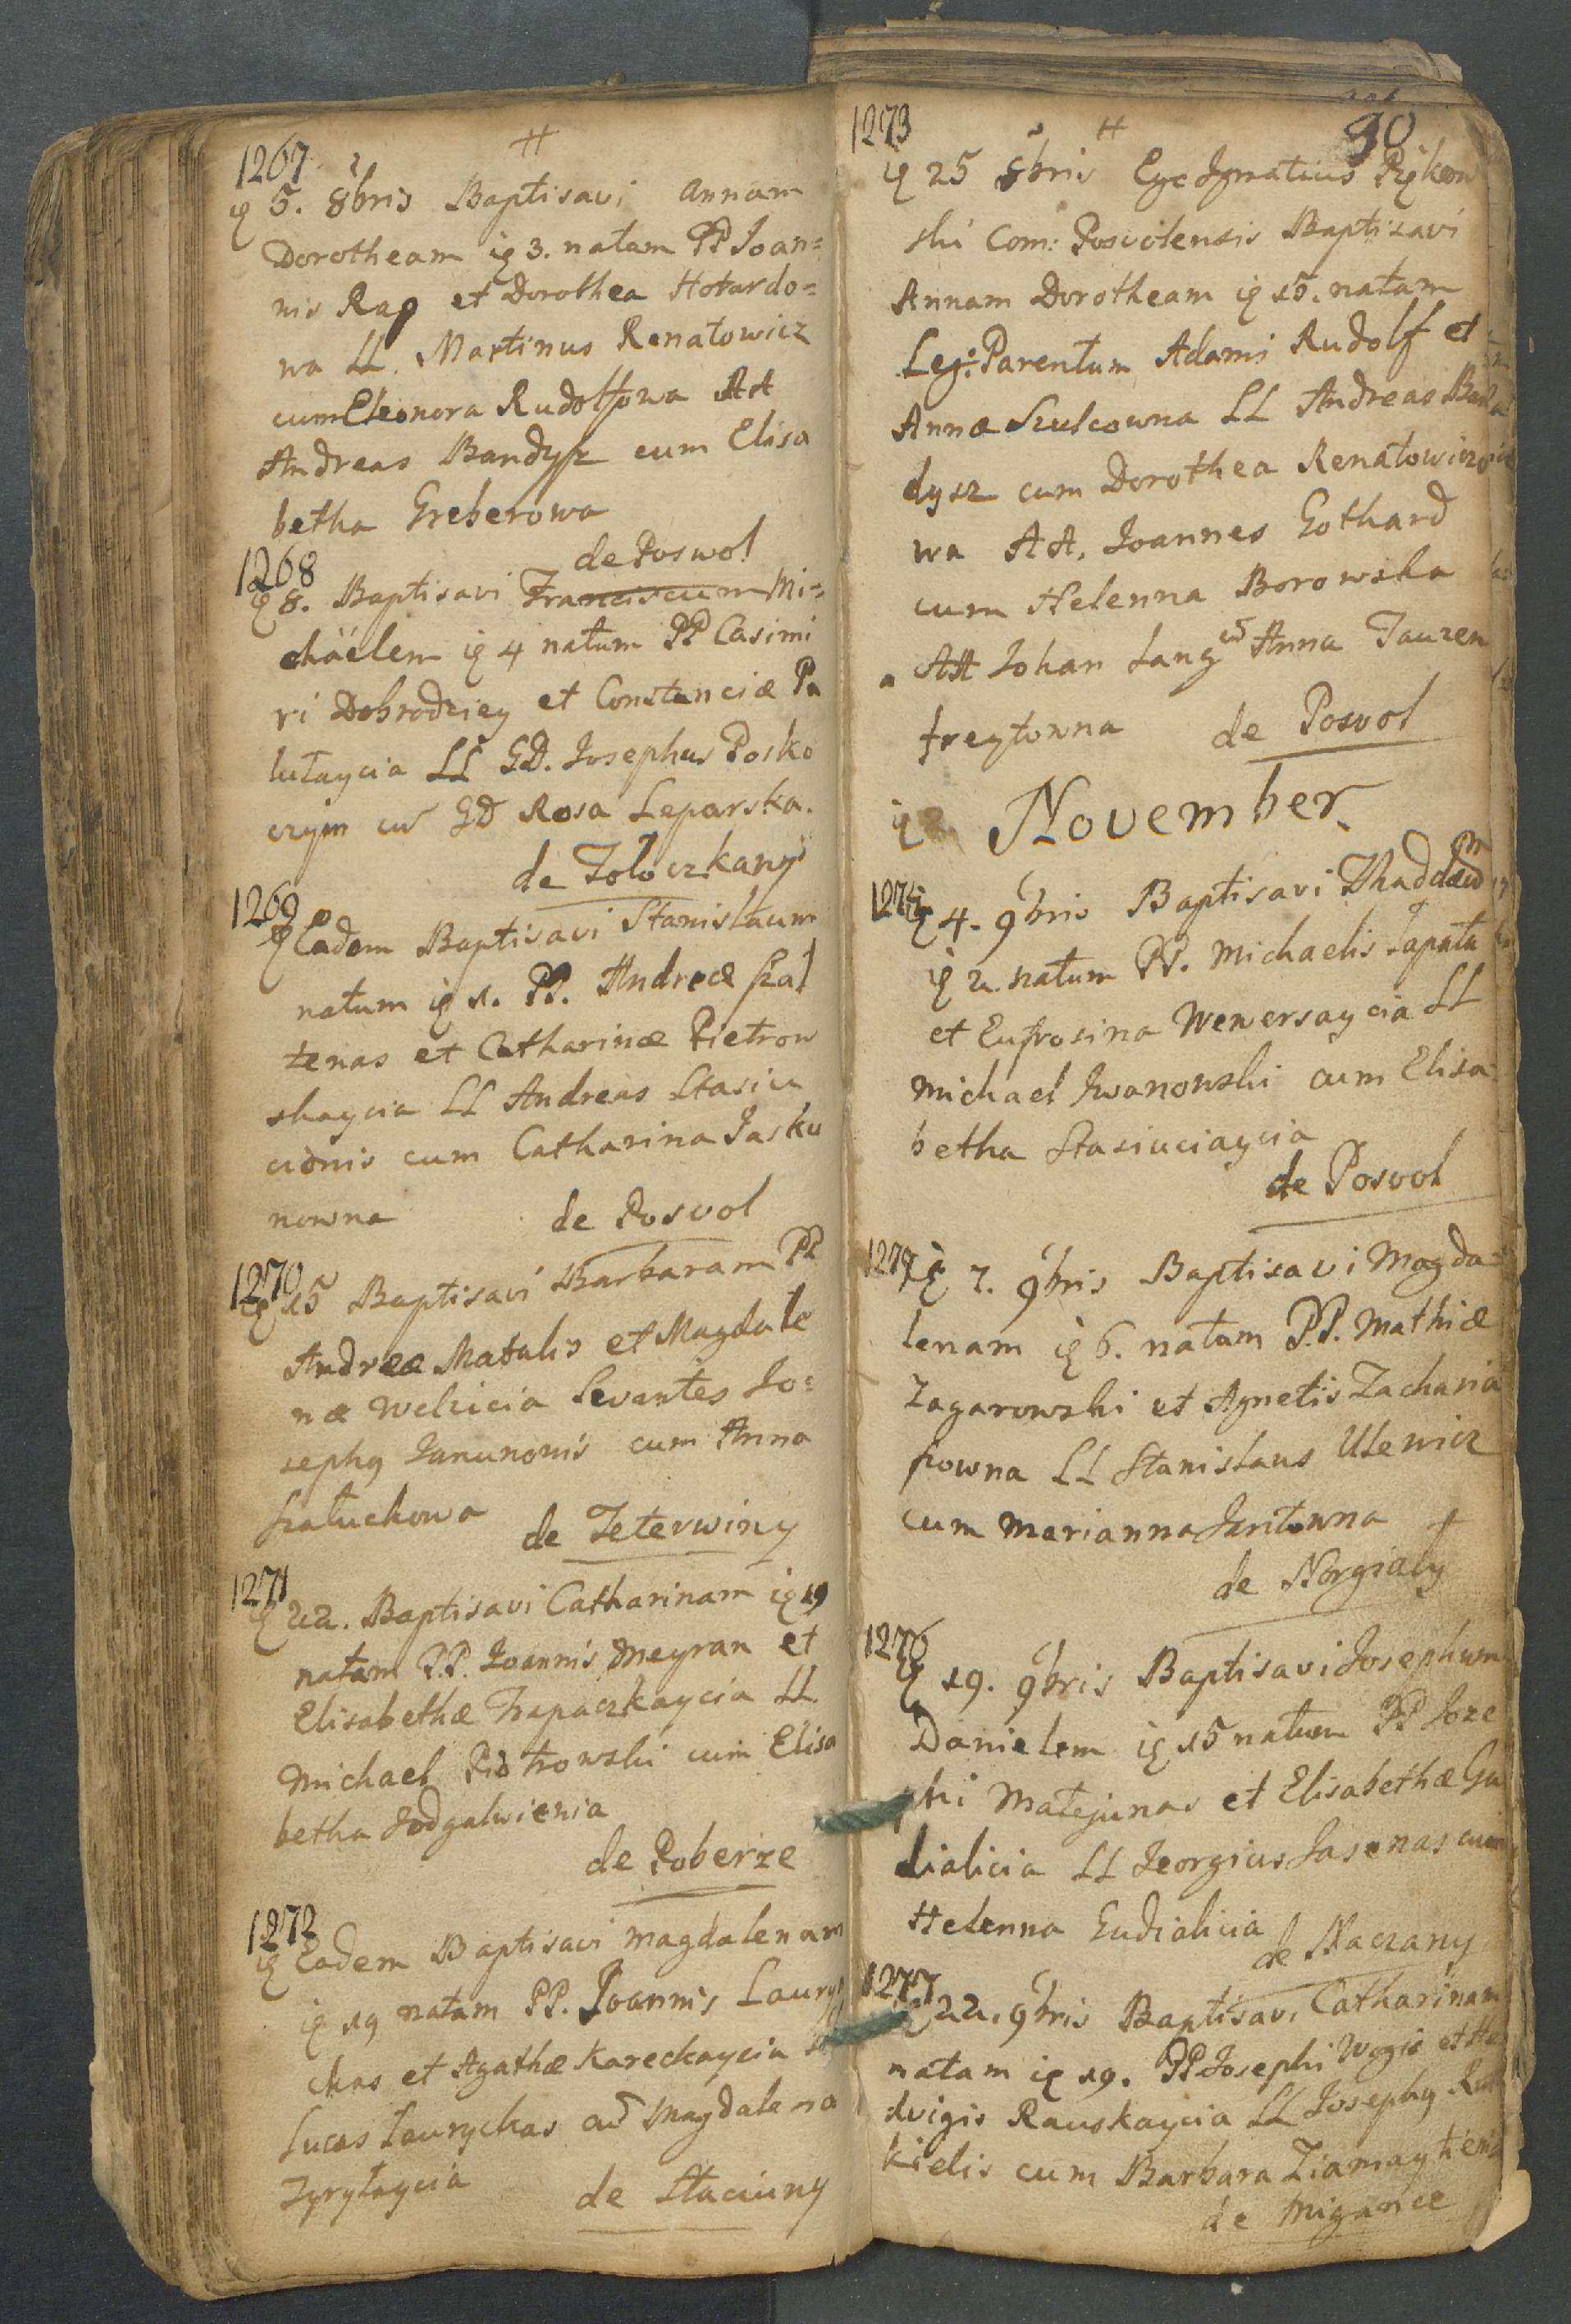 1267 #
5. 8bris Baptisavi Annam
Dorotheam 3. natam PP Ioan=
nis Rap et Dorothea Hotardo=
wa LL. Martinus Renatowicz
cum Eleonora Rudolfowa AA
Andreas Bandysz cum Elisa
betha Greberowa
de Poswol
1268
8. Baptisavi Franciscum Mi=
chäelem 4 natum PP Casimi
ri Dobrodziey et Constanciæ Pa
lutaycia LL GD. Josephus Posko
czym cū GD Rosa Leparska.
de Toloczkany
1269
Eadem Baptisavi Stanislaum
natum 1. PP. Andreæ Szal
tenas et Catharinæ Pietrow
skaycia LL Andreas Stasiu
cionis cum Catharina Jasku
nowna de Posvol
1270
15 Baptisavi Barbaram PP
Andreæ Matulis et Magdale
næ Welzicia Levantes Jo=
seph9 Janunonis cum Anna
Szatuchowa de Teterwiny
1271
22. Baptisavi Catharinam 19
natam P.P. Ioannis Meyran et
Elisabethæ Trapaczkaycia LL
Michael Piotrowski cum Elisa
betha Jodgalwienia
de Poberze
1272
Eadem Baptisavi Magdalenam
19 natam PP. Joannis Laury
ckas et Agathæ Kareckaycia
Lucas Laurychas cū Magdalena
Zyrytaycia de Staciuny
1273 # 90
25 8bris Ego Ignatius
ski Com: Posvolensis Baptisavi
Annam Dorotheam 15. natam
Leg: Parentum Adami Rudolf et
Annæ Szulcowna LL Andreas Ban
dysz cum Dorothea Renatowiczo
wa AA. Joannes Gothard
cum Helenna Borowska
AA Johan Lang cū Anna Tauzen
freytowna de Posvol
November
1274
4. 9bris Baptisavi Thaddæum
2. natum PP. Michaelis Lapata
et Eufrosina Wewersaycia LL
Michael Iwanowski cum Elisa
betha Stasiuciaycia
de Posvol
1275
7. 9bris Baptisavi Magda=
lenam 6. natam P.P. Mathiæ
Zagarowski et Agnetis Zacharia
szowna LL Stanislaus Ulewicz
cum Marianna Jantowna
de Norgialy
1276
19. 9bris Baptisavi Josephum
Danielem 15 natum PP Joze
phi Matejunas et Elisabethæ Gu
dialicia LL Georgius Jasenas cum
Helenna Gudialicia
de Naczany
1277
22. 9bris Baptisavi Catharinam
natam 19. PP Josephi Wogis et He
dvigis Rauskaycia LL Joseph9
kielis cum Barbara Ziamaytienia
de Migance